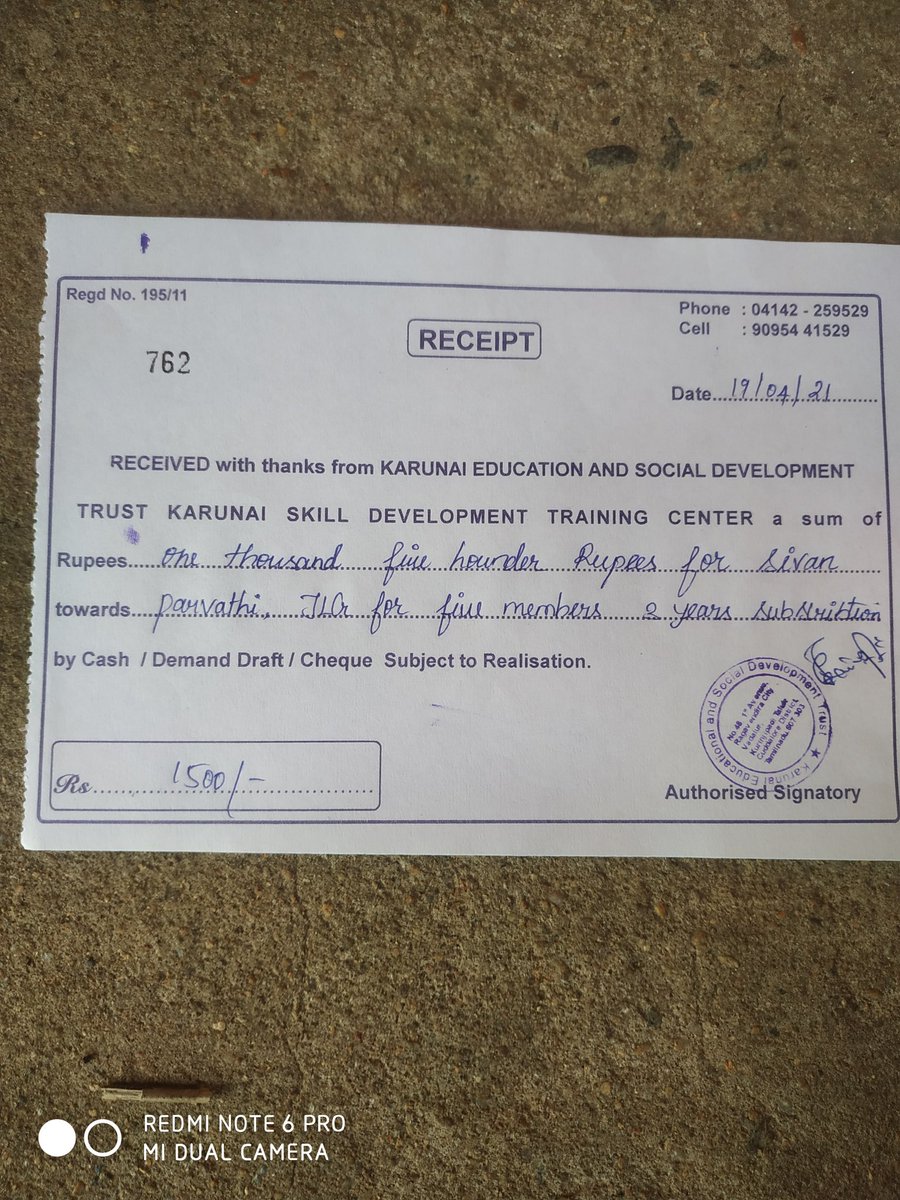 Regd No. 195/11
Phone : 04142 - 259529
Cell : 90954 41529
RECEIPT
762
Date 19/04/21
RECEIVED with thanks from KARUNAI EDUCATION AND SOCIAL DEVELOPMENT
TRUST KARUNAI SKILL DEVELOPMENT TRAINING CENTER a sum of
Rupees One thousand five hounder Rupees for Sivan
towards Parvathi, JLG for five members 2 years Subskribtion
by Cash / Demand Draft / Cheque Subject to Realisation.
Karunai Educational and Social Development Trust ★
No 48, 1st Avenue,
Raghavendra City
Vadalur,
Kurinjipadi Taluk
Cuddalore District,
Tamilnadu 607 303
Rs 1500/-
Authorised Signatory
REDMI NOTE 6 PRO
MI DUAL CAMERA